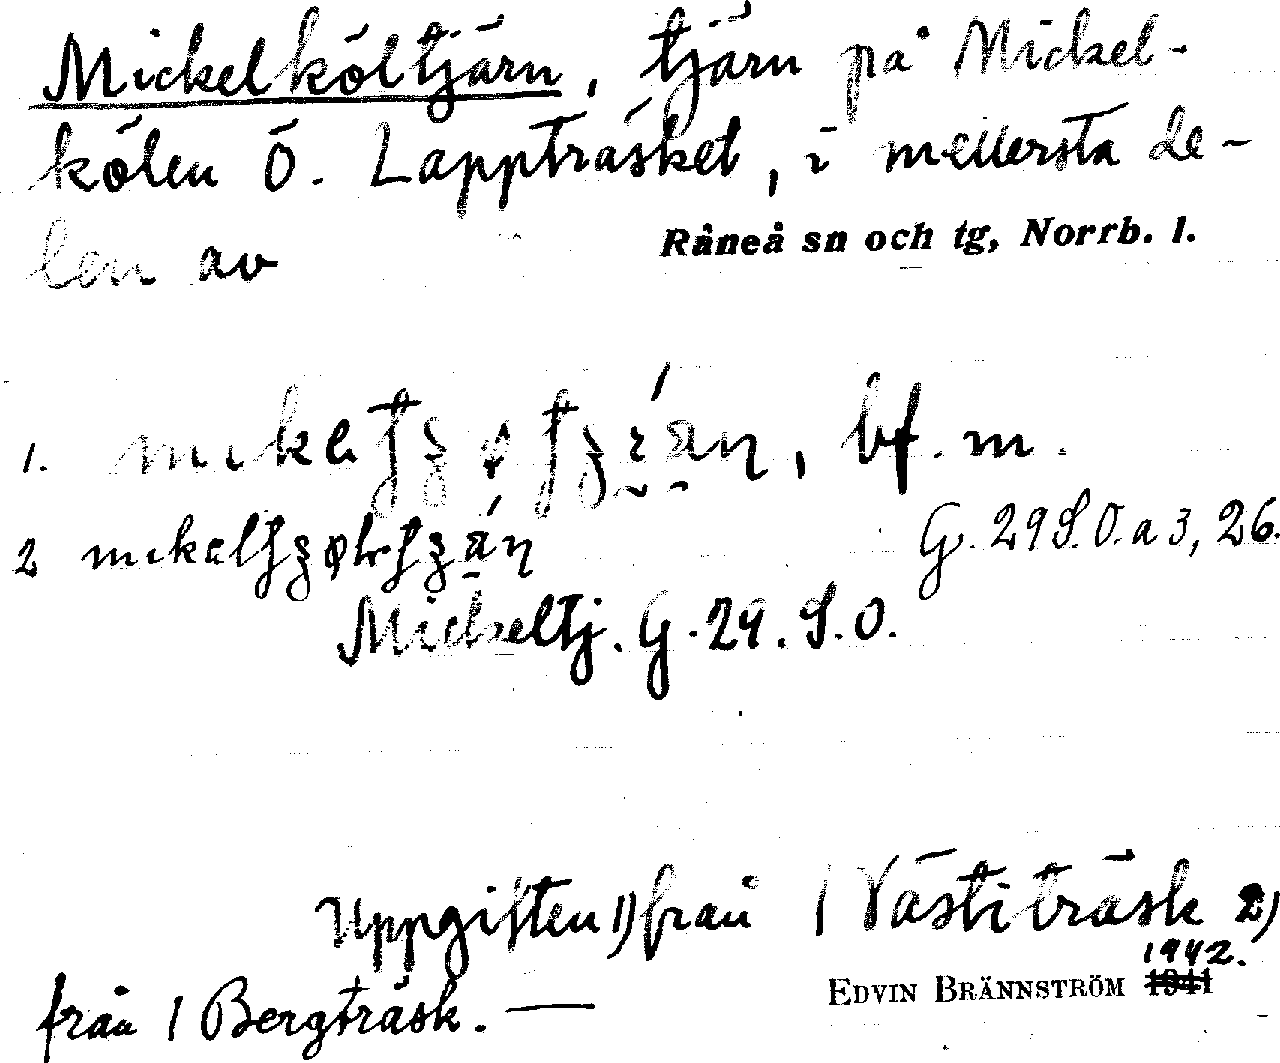 Mickelköltjärn, tjärn på Mickel-
kölen Ö. Lappträsket, i mellersta de-
len av Råneå sn och tg, Norrb. l.
1. , bf. m.
2
G. 29 S.O. a 3, 26.
Mickeltj. G. 29. S.O.
Uppgiften 1) från 1 Västiträsk 2)
från 1 Bergträsk. —
EDVIN BRÄNNSTRÖM 1942.